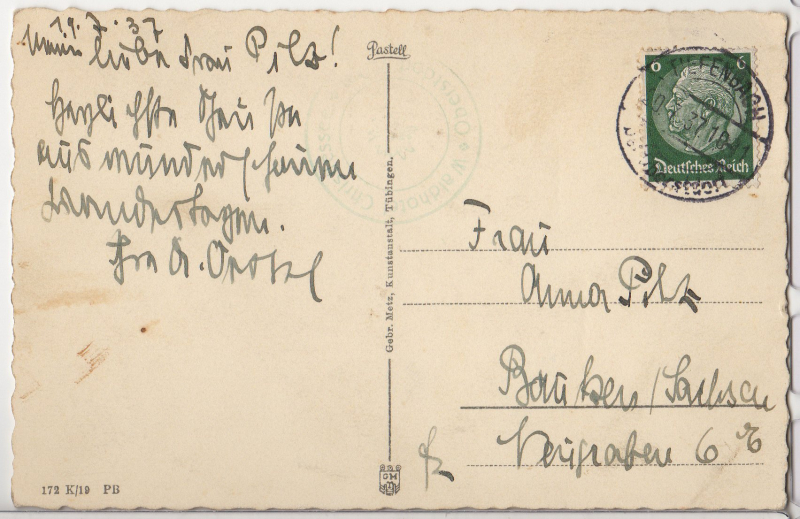 19.7.37
Meine liebe Frau Pilz!
Herzlichste Grüße
aus wunderschönen
Wandertagen.
Ihre A.
Pastell
Gebr. Metz, Kunstanstalt, Tübingen.
172 K/19 PB
6 6
Deutsches Reich
TIEFENBACH
Waldhotel
Frau
Anna Pilz
Bautzen/Sachsen
Neugraben 6